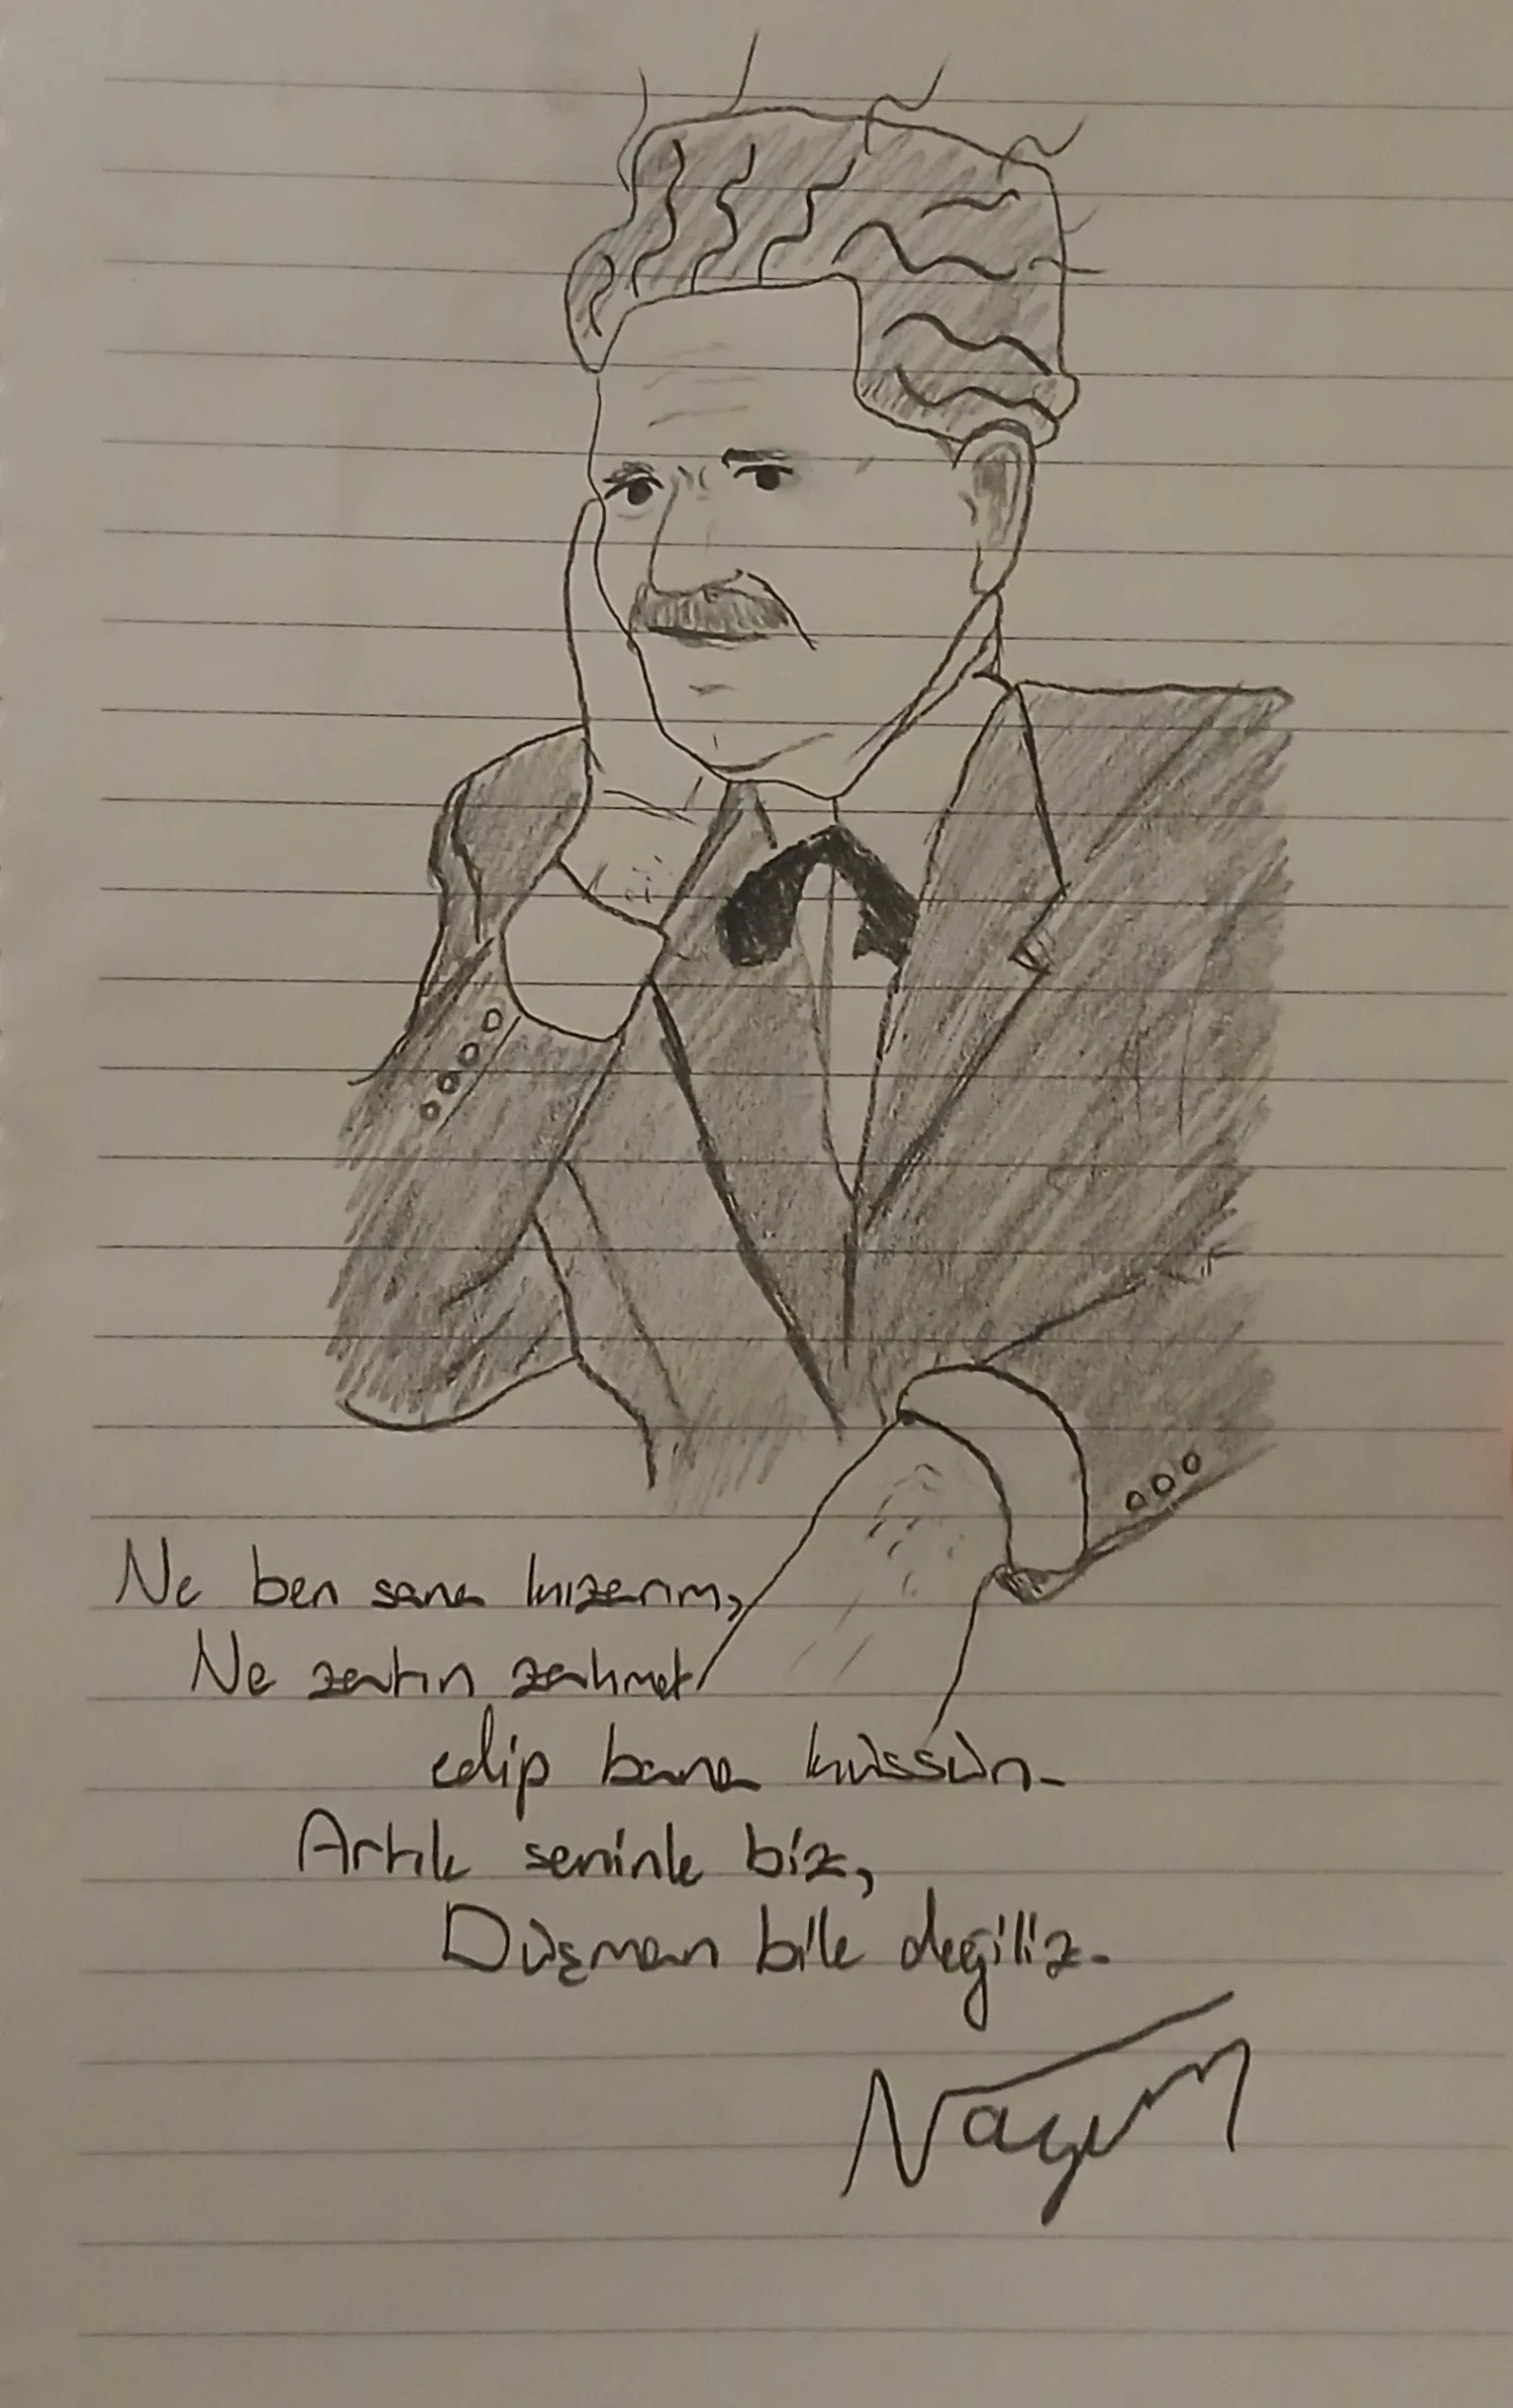 Ne ben sana kızarım,
Ne zatın zahmet
edip bana küssün.
Artık seninle biz,
Düşman bile değiliz.
Nazım